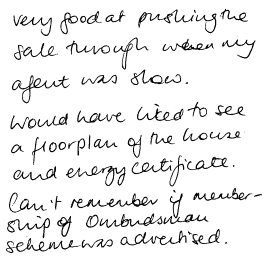 very good at pushing the
sale through when my
agent was slow.
Would have liked to see
a floorplan of the house
and energy certificate.
Can't remember if member-
ship of Ombudsman
scheme was advertised.